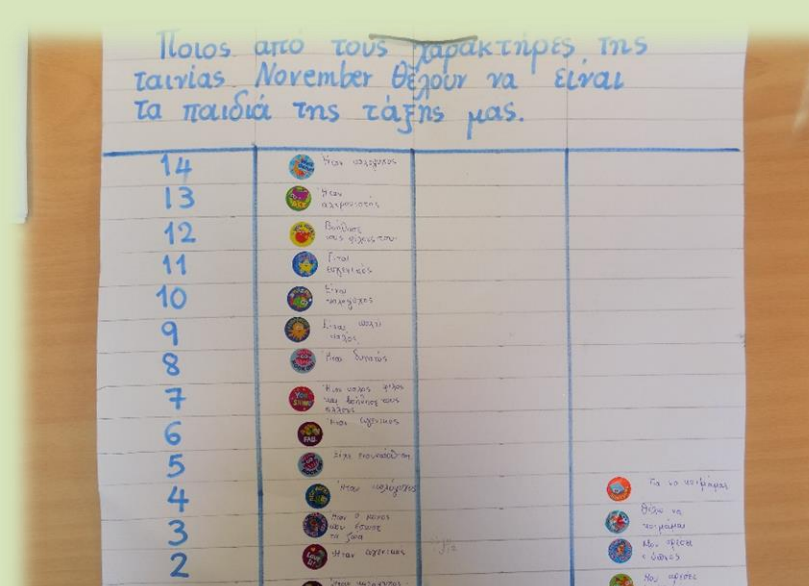 Ποιος από τους χαρακτήρες της
ταινίας November θέλουν να είναι
τα παιδιά της τάξης μας.
14 Ήταν καλόψυχος
13 Ήταν
12 Βοήθησε
τους φίλους του
11 Γιατί
ευγενικός
10 Είναι
καλόψυχος
9 Είναι πολύ
καλός
8 Ήταν δυνατός
7 Ήταν καλός φίλος
και βοήθησε τους
άλλους
6 Ήταν ευγενικός
5 Είχε
4 Ήταν καλόψυχος Για να κοιμάμαι
3 Ήταν ο μόνος
που έσωσε
τα ζώα
Θέλω να
κοιμάμαι
2 Ήταν ευγενικός
Μου αρέσει
ο ύπνος
Ήταν
Μου αρέσει